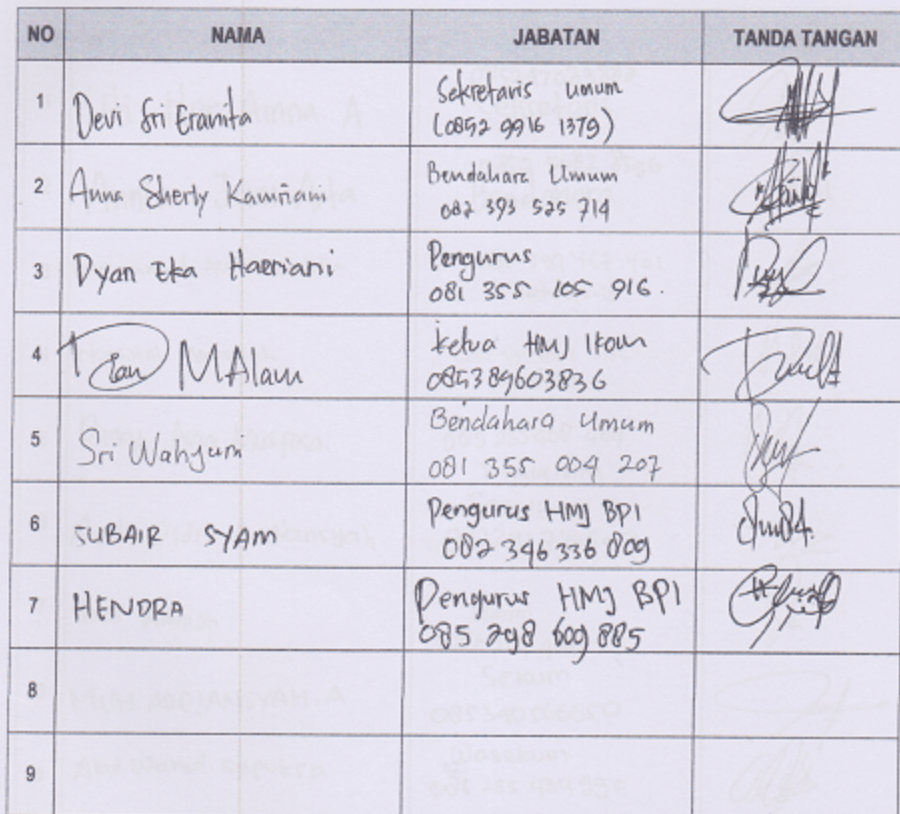 NO NAMA JABATAN TANDA TANGAN
1 Devi Sri Eranita Sekretaris Umum
(0852 9916 1379)
2 Anna Sherly Kamriani Bendahara Umum
082 393 525 714
3 Dyan Eka Haeriani Pengurus
081 355 105 916
4 MAlam Ketua HMJ Ikom
085389603836
5 Sri Wahyuni Bendahara Umum
081 355 004 207
6 SUBAIR SYAM Pengurus HMJ BPI
082 346 336 809
7 HENDRA Pengurus HMJ BPI
085 298 609 885
8
9